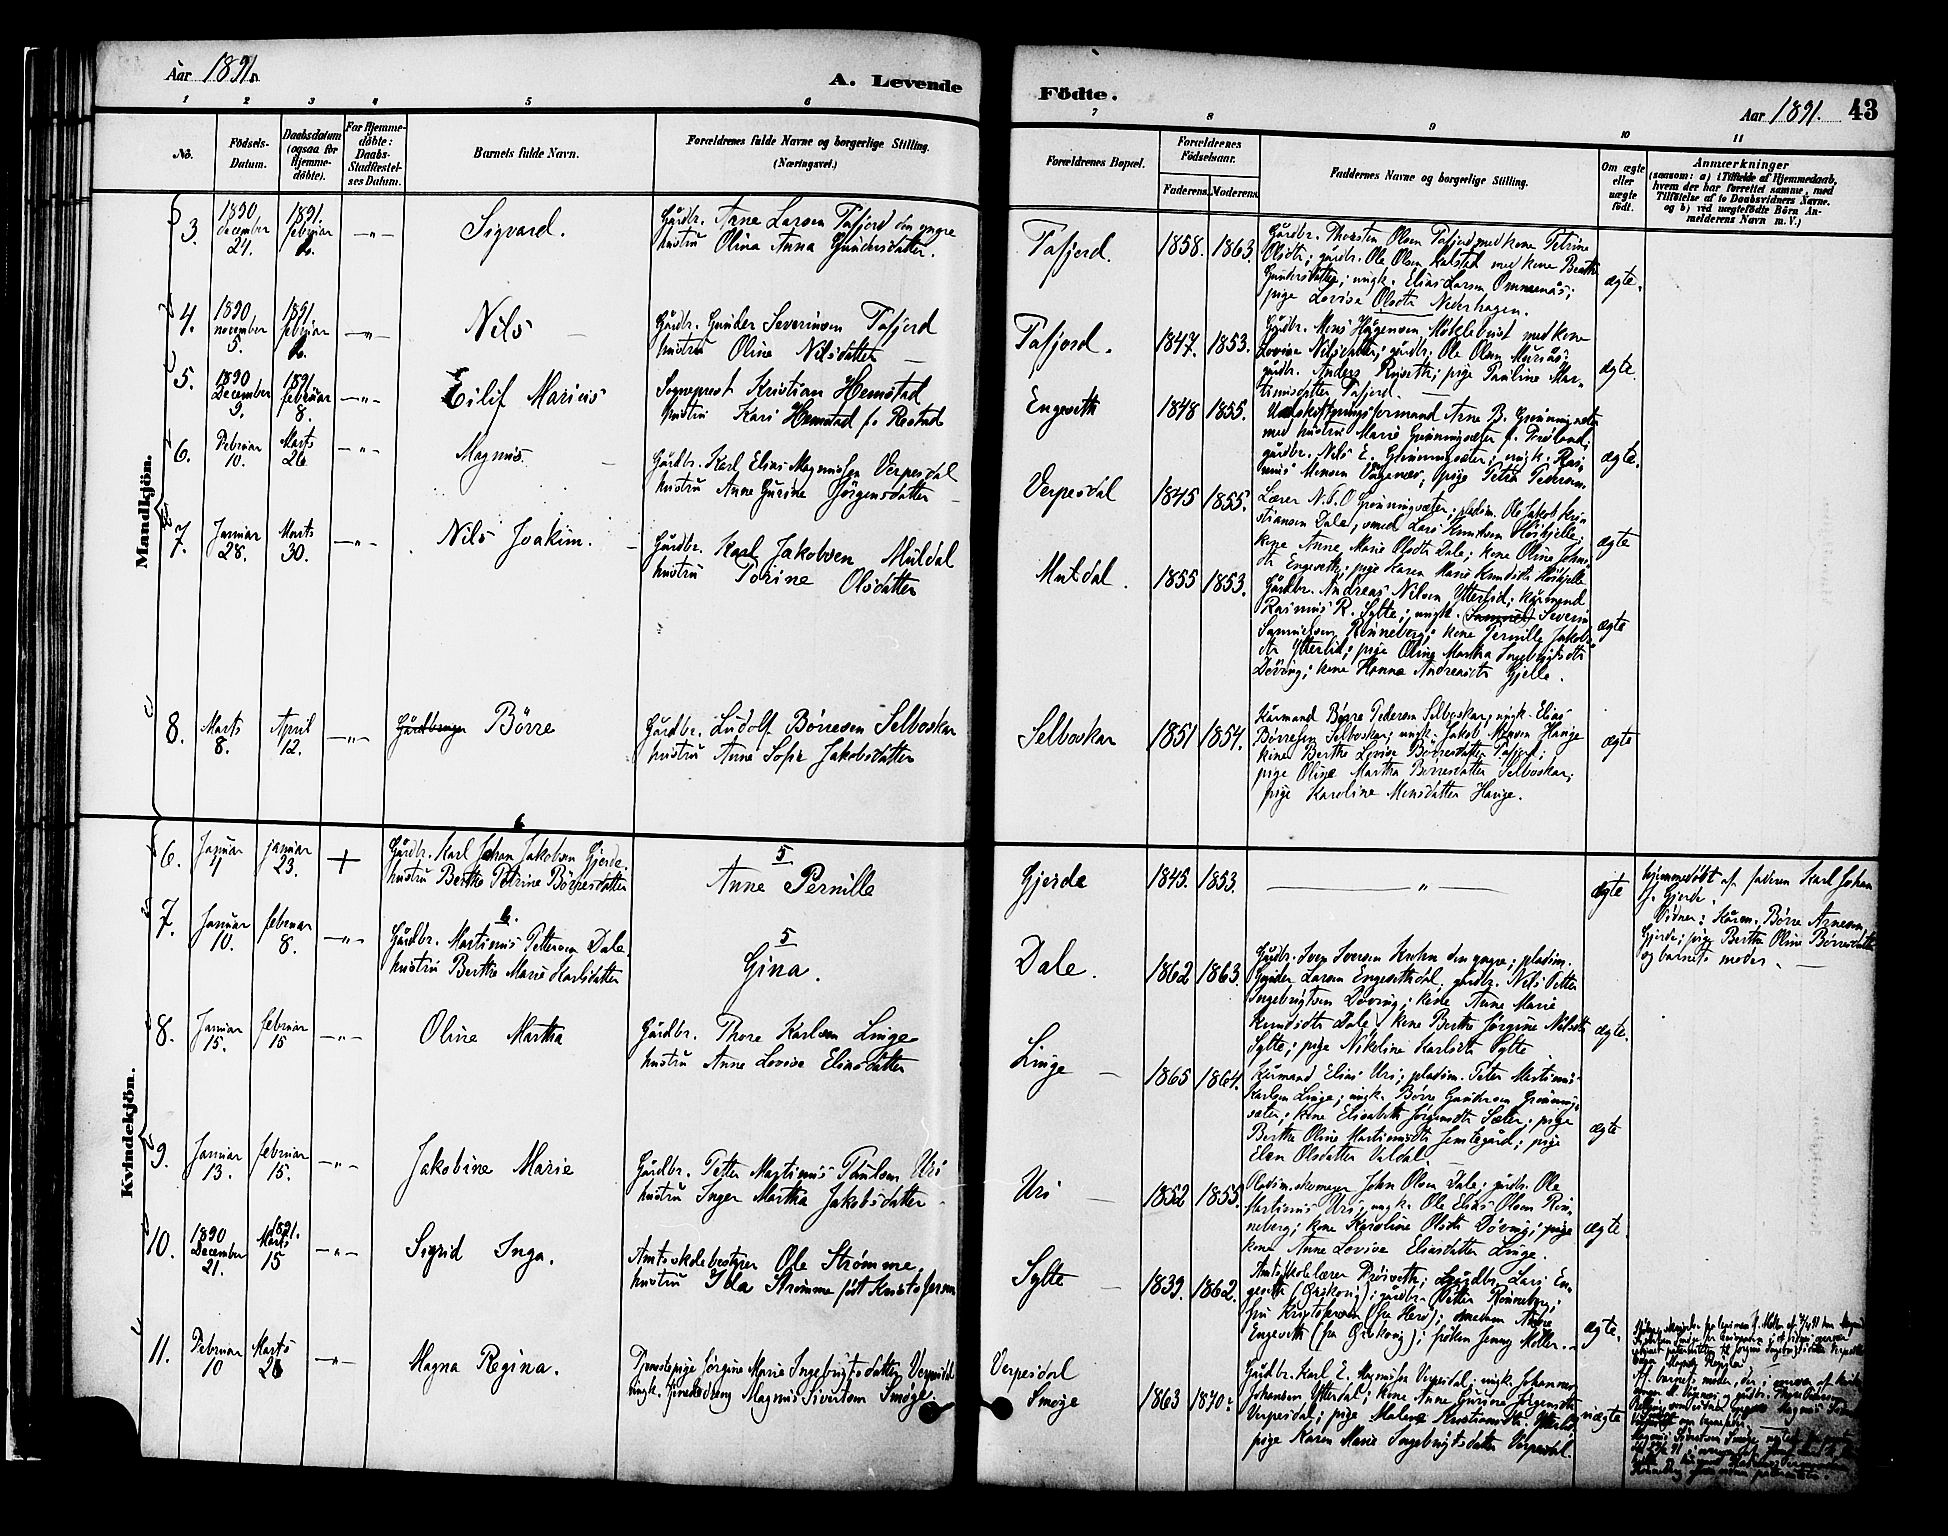 Aar 1891.
A. Levende
Födte.
Aar 1891. 43
1 2 3 4 5 6
7 8 9 10 11
No.
Födsels-
Datum.
Daabsdatum
(ogsaa for
Hjemme-
döbte).
For Hjemme-
döbte:
Daabs-
Stadfæstel-
ses Datum.
Barnets fulde Navn.
Forældrenes fulde Navne og borgerlige Stilling.
(Næringsvei.)
Forældrenes Bopæl.
Forældrenes
Födselsaar.
Faderens. Moderens.
Faddernes Navne og borgerlige Stilling.
Om ægte
eller
uægte
födt.
Anmærkninger
(saasom: a) i Tilfælde af Hjemmedaab,
hvem der har forrettet samme, med
Tilföielse af to Daabsvidners Navne.
og b) ved uægtefödte Börn An-
melderens Navn m. V.)
Mandkjön.
3. 1890 december 24. 1891. februar — " — Sigvard.
Gårdbr. Arne Larsen Tafjord den yngre
hustru Olina Anna Gundersdatter.
Tafjord. 1858. 1863.
Gårdbr. Thorsten Olsen Tafjord med kone Petrine
Olsdtr; gårdbr. Ole Olsen Kalstad med kone Berthe
Gundersdatter; ungk. Elias Larsen Ommenås;
pige Lovise Olsdtr Nederhagen.
ægte.
4. 1890 november 5. 1891. februar — " — Nils
Gårdbr. Gunder Severinsen Tafjord
hustru Oline Nilsdatter
Tafjord. 1847. 1853.
Gårdbr. Mons Hågensen Møklebust med kone
Lovise Nilsdatter; gårdbr. Ole Olsen Muriås;
gårdbr. Anders Røiseth; pige Pauline Mar-
tinusdatter Tafjord.
ægte.
5. 1890 December 9. 1891 februar 8. — " — Eilif Marius
Sogneprest Kristian Hemstad
hustru Kari Hemstad f. Restad
Engeseth 1848 1855.
Udskiftningsformand Arne B. Grønningsæter
med hustru Marie Grønningsæter f.
gårdbr. Nils E. Grønningsæter; ungk. Ras-
mus Monsen; pige Petra Pedersen
ægte.
6. Februar 10. Marts 26 — " — Magnus
Gårdbr. Karl Elias Magnussen Verpesdal
hustru Anne Gurine Jørgensdatter
Verpesdal 1845 1855.
Lærer N. P. O Grønningsæter; pladsm. Ole Jakob Kri-
stiansen Dale, smed Lars Knutsen
kone Anne Marie Olsdtr Dale; kone Oline Johns-
dtr Engeseth; pige Karen Marie Knudsdtr
ægte
7. Januar 28. Marts 30. — " — Nils Joakim.
Gårdbr. Karl Jakobsen Muldal
hustru Torine Olsdatter
Muldal. 1855 1853.
Gårdbr. Andreas Nilsen Ytterlid; kårmand
Rasmus R. Sylte; ungk. Severin
Samuelsen Rønneberg; kone Pernille Jakobs-
dtr Ytterlid; pige Oline Martha Ingebrigtsdtr
Døving; kone Hanna Andreasdtr Gjelle.
ægte
8. Marts 8. April 12. — " — Børre
Gårdbr. Ludolf Børresen Selboskar
hustru Anne Sofie Jakobsdatter
Selboskar 1851 1854.
Kårmand Børre Pedersen Selboskar; ungk. Elias
Børresen Selboskar; ungk. Jakob Monsen Hauge
kone Berthe Lovise Børresdatter Tafjord;
pige Oline Martha Børresdatter Selboskar;
pige Karoline Monsdatter Hauge.
ægte
Kvindekjön.
6. Januar 4 januar 23. +
6.
Gårdbr. Karl Johan Jakobsen Gjerde
hustru Berthe Petrine Børresdatter
5
Anne Pernille
Gjerde 1845. 1853. — " — ægte
hjemmedøbt af faderen Karl Johan
J. Gjerde.
Vidner: kårm. Børre Arnesen
Gjerde; pige Berthe Oline Børresdatter
og barnets moder.
7. Januar 10. februar 8. — " —
6.
Gårdbr. Martinus Pettersen Dale
hustru Berthe Marie Karlsdatter
5
Gina.
Dale. 1862 1863.
Gårdbr. Iver Iversen Kuhn den yngre; pladsm.
Gunder Larsen Engesethdal, gårdbr. Nils Petter
Ingebrigtsen Døving; kone Anne Marie
Knudsdtr Dale; kone Berthe Jørgine Nilsdtr
Sylte; pige Nikoline Karlsdtr Sylte
ægte.
8. Januar 15. februar 15 — " — Oline Martha
Gårdbr. Thore Karlsen Linge
hustru Anne Lovise Eliasdatter
Linge — 1865 1864.
Kårmand Elias Uri; pladsm. Peter Martinus
Karlsen Linge; ungk. Børre Gundersen Grønning-
sæter; kone Elisabeth Jørgensdtr Sæter; pige
Berthe Oline Martinusdtr Jemtegård; pige
Elen Olsdatter Valdal
ægte
9. Januar 13. februar 15. — " — Jakobine Marie
Gårdbr. Petter Martinus Paulsen Uri
hustru Inger Martha Jakobsdatter
Uri — 1852 1855.
Pladsm. skomager John Olsen Dale; gårdbr. Ole
Martinus Uri, ungk. Ole Elias Olsen Røn-
neberg; kone Karoline Olsdtr Døving; pige
kone Anne Lovise Eliasdatter Linge.
ægte.
10. 1890 December 21. 1891. Marts 15 — " — Sigrid Inga.
Amtsskolebestyrer Ole Strømme,
hustru Ida Strømme født Kristofersen
Sylte — 1839. 1862.
Amtsskolelærer Prøiseth; Gårdbr. Lars En-
geseth (Ørskoug); gårdbr. Petter Rønneberg;
fru Kristofersen (fra Herø); madam
Engeseth (fra Ørskoug); frøken Jenny Møller.
ægte.
11. Februar 10 Marts 26 — " — Magna Regina.
Tjenestepige Jørgine Marie Ingebrigtsdatter Verpesdal
ungk. Magnus Sivertsen Smøge
Verpesdal
Smøge 1863 1870.
Gårdbr. Karl E. Magnussen Verpesdal; ungk. Johannes
Johansen Ytterdal; kone Anne Gurine Jørgensdtr
Verpesdal; pige Malene Kristiansdtr
pige Karen Marie Ingebrigtsdatter Verpesdal.
uægte